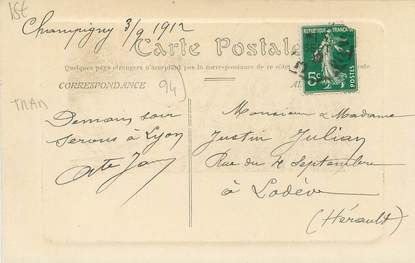 ISE
Champigny 3/9 1912
Carte Postale
REPUBLIQUE FRANCAISE
5c
POSTES
Quelques pays étrangers n'acceptent pas la correspondance de ce côté
CORRESPONDANCE
94
TRAM
Demain soir
serons à Lyon
Monsieur & Madame
Justin Julian
Rue du 4 Septembre
à Lodève
(Hérault)